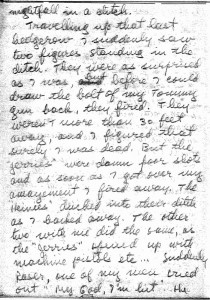 nightfall in a ditch.
Travelling up that last
hedgerow I suddenly saw
two figures standing in the
ditch. They were as surprised
as I was before I could
draw the bolt of my tommy
gun back, they fired. They
weren't more than 30 feet
away, and I figured that
surely I was dead. But the
"jerries" were damn poor shots
and as soon as I got over my
amazement I fired away. The
"Heinies" ducked into their ditch
as I backed away. The other
two with me did the same, as
the "Jerries" opened up with
machine pistols etc... Suddenly
one of my men cried
out "My God, I'm hit". He